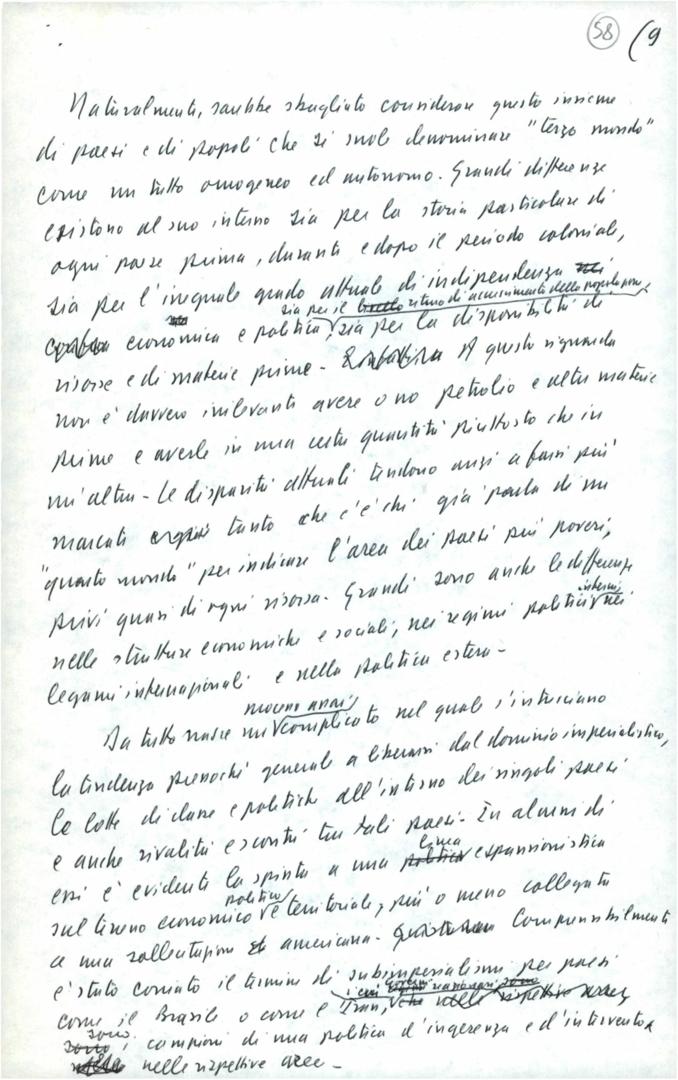 58 (9
Naturalmente, sarebbe sbagliato considerare questo insieme
di paesi e di popoli che si suole denominare "terzo mondo"
come un tutto omogeneo ed autonomo. Grandi differenze
esistono al suo interno sia per la storia particolare di
ogni paese prima, durante e dopo il periodo coloniale,
sia per l'ineguale grado attuale di indipendenza
sia per il livello ritmo di accrescimento della popolazione,
economica e politica, sia per la disponibilità di
risorse e di materie prime. A questo riguardo
non è davvero irrilevante avere o no petrolio e altre materie
prime e averle in una certa quantità piuttosto che in
un'altra. Le disparità attuali tendono anzi a farsi più
marcate tanto che c'è chi già parla di un
"quarto mondo" per indicare l'area dei paesi più poveri,
privi quasi di ogni risorsa. Grandi sono anche le differenze
interni,
nelle strutture economiche e sociali, nei regimi politici nei
legami internazionali e nella politica estera.
Da tutto nasce un complicato nel quale s'intrecciano
la tendenza pressoché generale a liberarsi dal dominio imperialistico,
le lotte di classe e politiche all'interno dei singoli paesi
e anche rivalità e scontri tra tali paesi. In alcuni di
linea
essi è evidente la spinta a una politica espansionistica
politico
sul terreno economico e territoriale, più o meno collegata
a una sollecitazione americana. Comprensibilmente
è stato coniato il termine di subimperialismi per paesi
i cui sono
come il Brasile o come l'Iran, che nelle rispettive aree
sono
sono i campioni di una politica d'ingerenza e d'intervento
nelle rispettive aree.